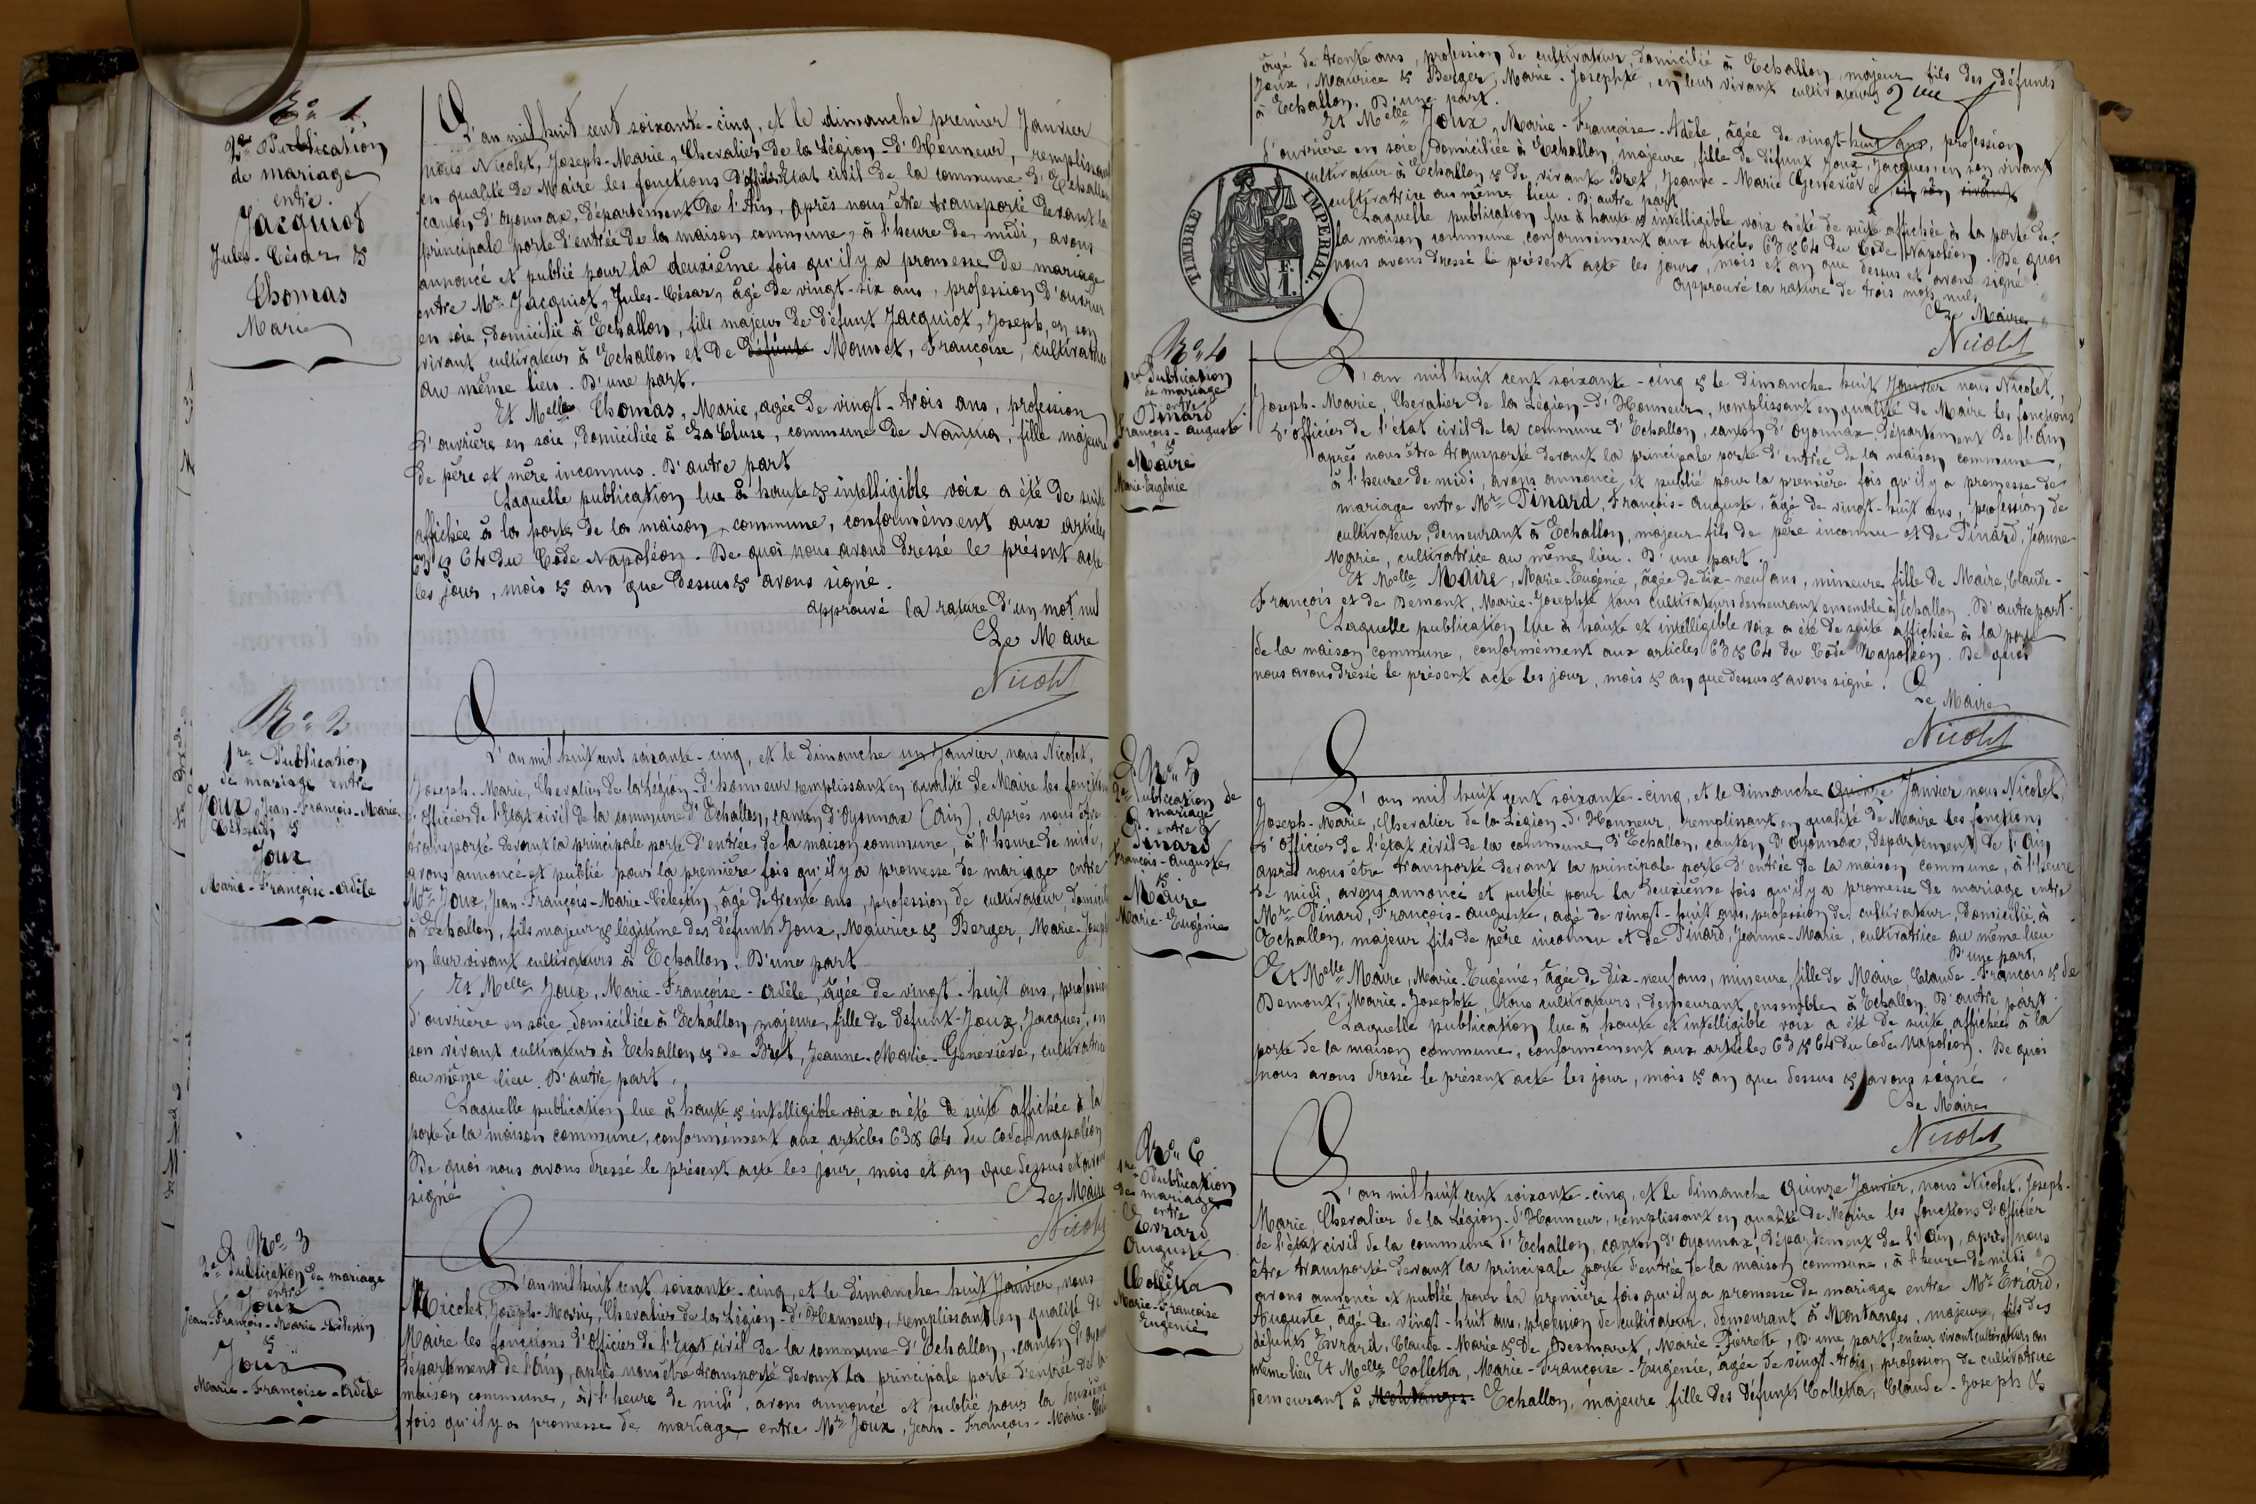 No 1
2me Publication
de mariage
entre
Jacquiot
Jules-César &
Thomas
Marie
L'an mil huit cent soixante-cinq, et le dimanche premier Janvier
nous Nicolet, Joseph-Marie, Chevalier de la Légion-d'Honneur, remplissant
en qualité de Maire les fonctions d'officier d'Etat civil de la commune d'Echallon
canton d'Oyonnax, département de l'Ain, après nous être transporté devant la
principale porte d'entrée de la maison commune, à l'heure de midi, avons
annoncé et publié pour la deuxième fois qu'il y a promesse de mariage
entre Mr Jacquiot, Jules-César, âgé de vingt-six ans, profession d'ouvrier
en soie, domicilié à Echallon, fils majeur de défunt Jacquiot, Joseph, en son
vivant cultivateur à Echallon et de défunte Monnet, Françoise, cultivatrice
au même lieu. D'une part.
Et Melle Thomas, Marie, agée de vingt-trois ans, profession
d'ouvrière en soie, domiciliée à La Cluse, commune de Nantua, fille majeure
de père et mère inconnus. D'autre part
Laquelle publication lue à haute & intelligible voix a été de suite
affichée à la porte de la maison commune, conformément aux articles
63 & 64 du Code Napoléon. De quoi nous avons dressé le présent acte
les jour, mois & an que dessus & avons signé.
approuvé la rature d'un mot nul
Le Maire
Nicolet
No 2
1re Publication
de mariage entre
Joux, Jean-François-Marie
Célestin &
Joux
Marie-Françoise-Adèle
L'an mil huit cent soixante-cinq, et le dimanche un Janvier, nous Nicolet,
Joseph-Marie, Chevalier de la Légion-d'honneur remplissant en qualité de Maire les fonctions
d'officier de l'Etat civil de la commune d'Echallon, canton d'Oyonnax (Ain), après nous être
transporté devant la principale porte d'entrée de la maison commune, à l'heure de midi,
avons annoncé et publié pour la première fois qu'il y a promesse de mariage entre
Mr Joux, Jean-François-Marie-Célestin, âgé de trente ans, profession de cultivateur, domicilié
à Echallon, fils majeur & légitime des défunts Joux, Maurice & Berger, Marie-Josephte
en leur vivant cultivateurs à Echallon. D'une part
Et Melle Joux, Marie-Françoise-Adèle, âgée de vingt-huit ans, profession
d'ouvrière en soie, domiciliée à Echallon, majeure, fille de défunt Joux, Jacques, en
son vivant cultivateur à Echallon & de Bret, Jeanne-Marie-Geneviève, cultivatrice
au même lieu. D'autre part.
Laquelle publication lue à haute & intelligible voix a été de suite affichée à la
porte de la maison commune, conformément aux articles 63 & 64 du Code napoléon
De quoi nous avons dressé le présent acte les jour, mois et an que dessus et avons
signé
Le Maire
Nicolet
No 3
2e Publication de mariage
entre
Joux
Jean-François-Marie-Célestin
&
Joux
Marie-Françoise-Adèle
L'an mil huit cent soixante-cinq, et le dimanche huit Janvier, nous
Nicolet, Joseph-Marie, Chevalier de la Légion-d'Honneur, remplissant en qualité de
Maire les fonctions d'Officier de l'Etat civil de la commune d'Echallon, canton d'Oyonnax
département de l'Ain, après nous être transporté devant la principale porte d'entrée de la
maison commune, à l'heure de midi, avons annoncé et publié pour la deuxième
fois qu'il y a promesse de mariage entre Mr Joux, Jean-François-Marie-
âgé de trente ans, profession de cultivateur, domicilié à Echallon, majeur fils des défunts
Joux, Maurice & Berger, Marie-Josephte, en leur vivant cultivateurs
à Echallon. D'une part.
Et Melle Joux, Marie-Françoise-Adèle, âgée de vingt-huit ans, profession
d'ouvrière en soie, domiciliée à Echallon, majeure, fille de défunt Joux, Jacques, en son vivant
cultivateur à Echallon & de vivante Bret, Jeanne-Marie Geneviève en son vivant
cultivatrice au même lieu. D'autre part
Laquelle publication lue à haute & intelligible voix a été de suite affichée à la porte de
la maison commune conformément aux articles 63 & 64 du Code Napoléon. De quoi
nous avons dressé le présent acte les jours, mois et an que dessus et avons signé.
Approuvé la rature de trois mots nuls
Le Maire
Nicolet
TIMBRE IMPERIAL.
F.
1.
No 4
1re Publication
de mariage
entre
Pinard
François-Auguste
&
Maire
Marie-Eugénie
L'an mil huit cent soixante-cinq & le dimanche huit Janvier nous Nicolet,
Joseph-Marie, Chevalier de la Légion-d'Honneur, remplissant en qualité de Maire les fonctions
d'officier de l'état civil de la commune d'Echallon, canton d'Oyonnax, département de l'Ain
après nous être transporté devant la principale porte d'entrée de la maison commune,
à l'heure de midi, avons annoncé et publié pour la première fois qu'il y a promesse de
mariage entre Mr Pinard, François-Auguste, âgé de vingt-huit ans, profession de
cultivateur, demeurant à Echallon, majeur fils de père inconnu et de Pinard, Jeanne
Marie, cultivatrice au même lieu. D'une part.
Et Melle Maire, Marie-Eugénie, âgée de dix-neuf ans, mineure, fille de Maire, Claude-
François et de Demont, Marie-Josephte tous cultivateurs demeurant ensemble à Echallon. D'autre part.
Laquelle publication lue à haute et intelligible voix a été de suite affichée à la porte
de la maison commune, conformément aux articles 63 & 64 du Code Napoléon. De quoi
nous avons dressé le présent acte les jour, mois & an que dessus & avons signé.
Le Maire
Nicolet
No 5
2e Publication de
mariage
entre
Pinard
François-Auguste
&
Maire
Marie-Eugénie
L'an mil huit cent soixante-cinq, et le dimanche Quinze Janvier nous Nicolet,
Joseph-Marie, Chevalier de la Légion-d'Honneur, remplissant en qualité de Maire les fonctions
d'Officier de l'état civil de la commune d'Echallon, canton d'Oyonnax, département de l'Ain
après nous être transporté devant la principale porte d'entrée de la maison commune, à l'heure
de midi, avons annoncé et publié pour la deuxième fois qu'il y a promesse de mariage entre
Mr Pinard, François-Auguste, âgé de vingt-huit ans, profession de cultivateur, domicilié à
Echallon, majeur fils de père inconnu et de Pinard, Jeanne-Marie, cultivatrice au même lieu
D'une part,
Et Melle Maire, Marie-Eugénie, âgée de dix-neuf ans, mineure, fille de Maire, Claude-François & de
Demont, Marie-Josephte, tous cultivateurs, demeurant ensemble à Echallon. D'autre part.
Laquelle publication lue à haute et intelligible voix a été de suite affichée à la
porte de la maison commune, conformément aux articles 63 & 64 du Code Napoléon. De quoi
nous avons dressé le présent acte les jour, mois & an que dessus & avons signé.
Le Maire
Nicolet
No 6
1re Publication
de mariage
entre
Evrard
Auguste
&
Colletta
Marie-Françoise
Eugénie
L'an mil huit cent soixante-cinq, et le dimanche Quinze Janvier, nous Nicolet, Joseph-
Marie, Chevalier de la Légion-d'Honneur, remplissant en qualité de Maire les fonctions d'Officier
de l'état civil de la commune d'Echallon, canton d'Oyonnax, département de l'Ain, après nous
être transporté devant la principale porte d'entrée de la maison commune, à l'heure de midi,
avons annoncé et publié pour la première fois qu'il y a promesse de mariage entre Mr Evrard,
Auguste, âgé de vingt-huit ans, profession de cultivateur, demeurant à Montanges, majeur, fils des
défunts Evrard, Claude-Marie & De Desmaret, Marie-Pierrette, D'une part, en leur vivant cultivateurs au
même lieu Et Melle Colletta, Marie-Françoise-Eugénie, âgée de vingt-trois, profession de cultivatrice
demeurant à Montanges Echallon, majeure fille des défunts Colletta, Claude-Joseph &